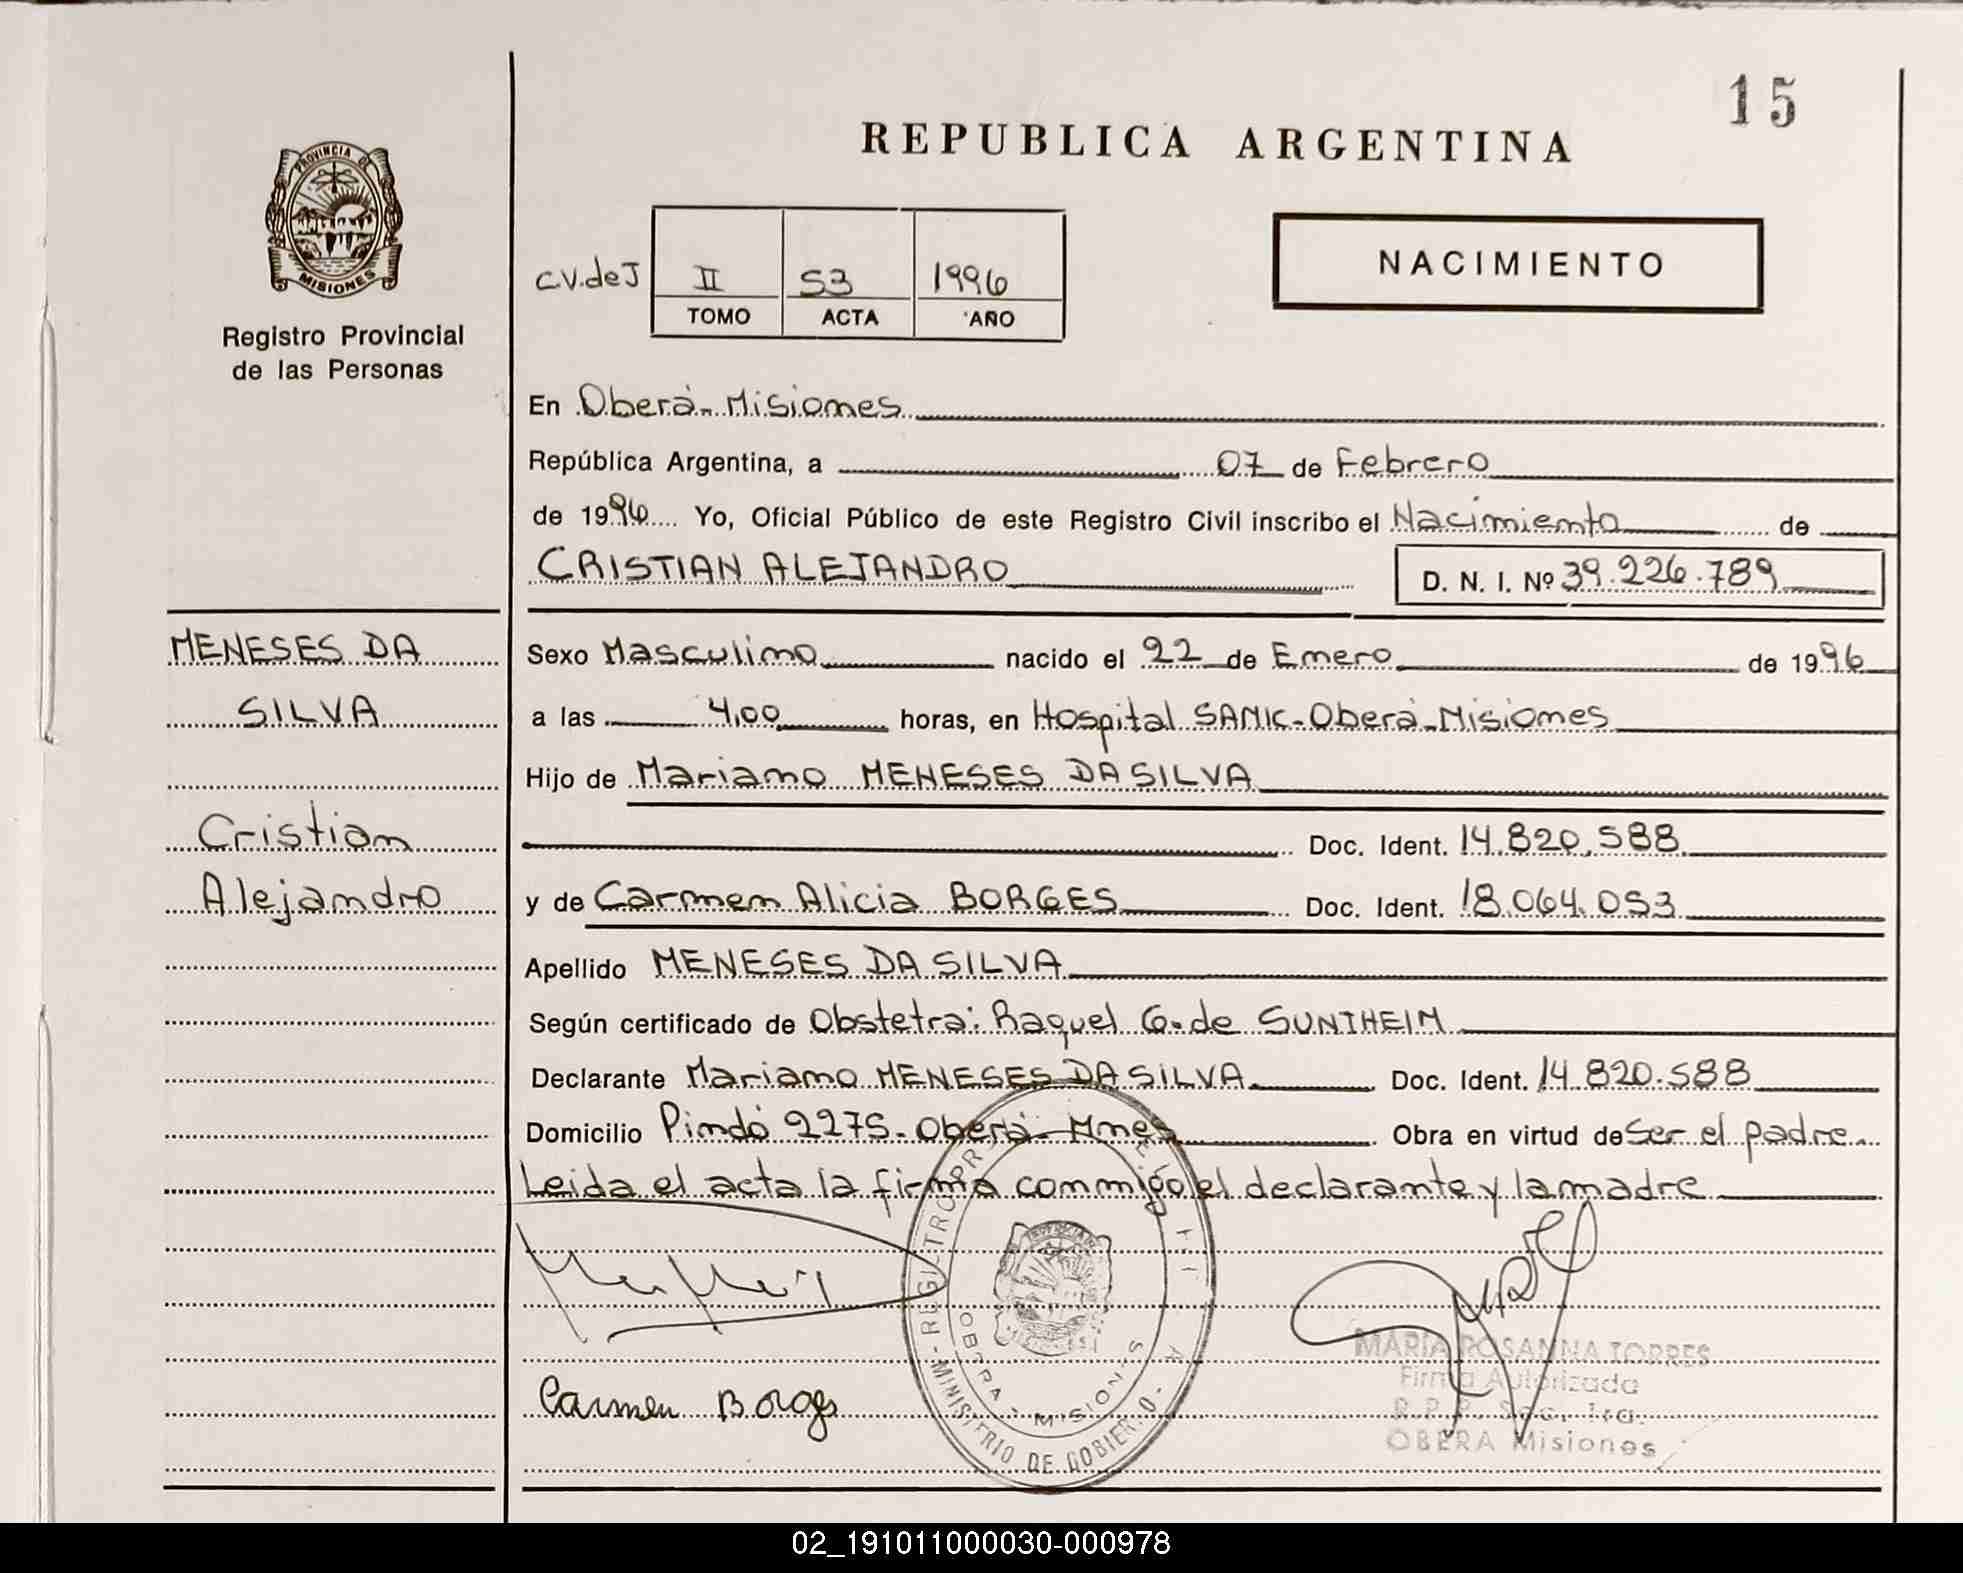 15
REPUBLICA ARGENTINA
PROVINCIA DE
MISIONES
Registro Provincial
de las Personas
C.V.deJ II 53 1996
TOMO ACTA AÑO
NACIMIENTO
En Oberá-Misiones
República Argentina, a 07 de Febrero
de 1996 Yo, Oficial Público de este Registro Civil inscribo el Nacimiento de
CRISTIAN ALEJANDRO D. N. I. Nº 39.226.789
MENESES DA
SILVA
Cristian
Alejandro
Sexo Masculino nacido el 22 de Enero de 1996
a las 4,00 horas, en Hospital SAMIC-Oberá-Misiones
Hijo de Mariano MENESES DA SILVA
Doc. Ident. 14.820.588
y de Carmen Alicia BORGES Doc. Ident. 18.064.053
Apellido MENESES DA SILVA
Según certificado de Obstetra: Raquel G. de SUNTHEIM
Declarante Mariano MENESES DA SILVA Doc. Ident. 14.820.588
Domicilio Pindó 2275-Oberá-Mnes Obra en virtud de Ser el padre
Leida el acta la firma conmigo el declarante y la madre
MINISTRIO DE GOBIERNO
OBERA - MISIONES
MARIA ROSANNA TORRES
Firma Autorizada
R.P.P. Sec. 1ra.
OBERA Misiones
Carmen Borges
02_191011000030-000978